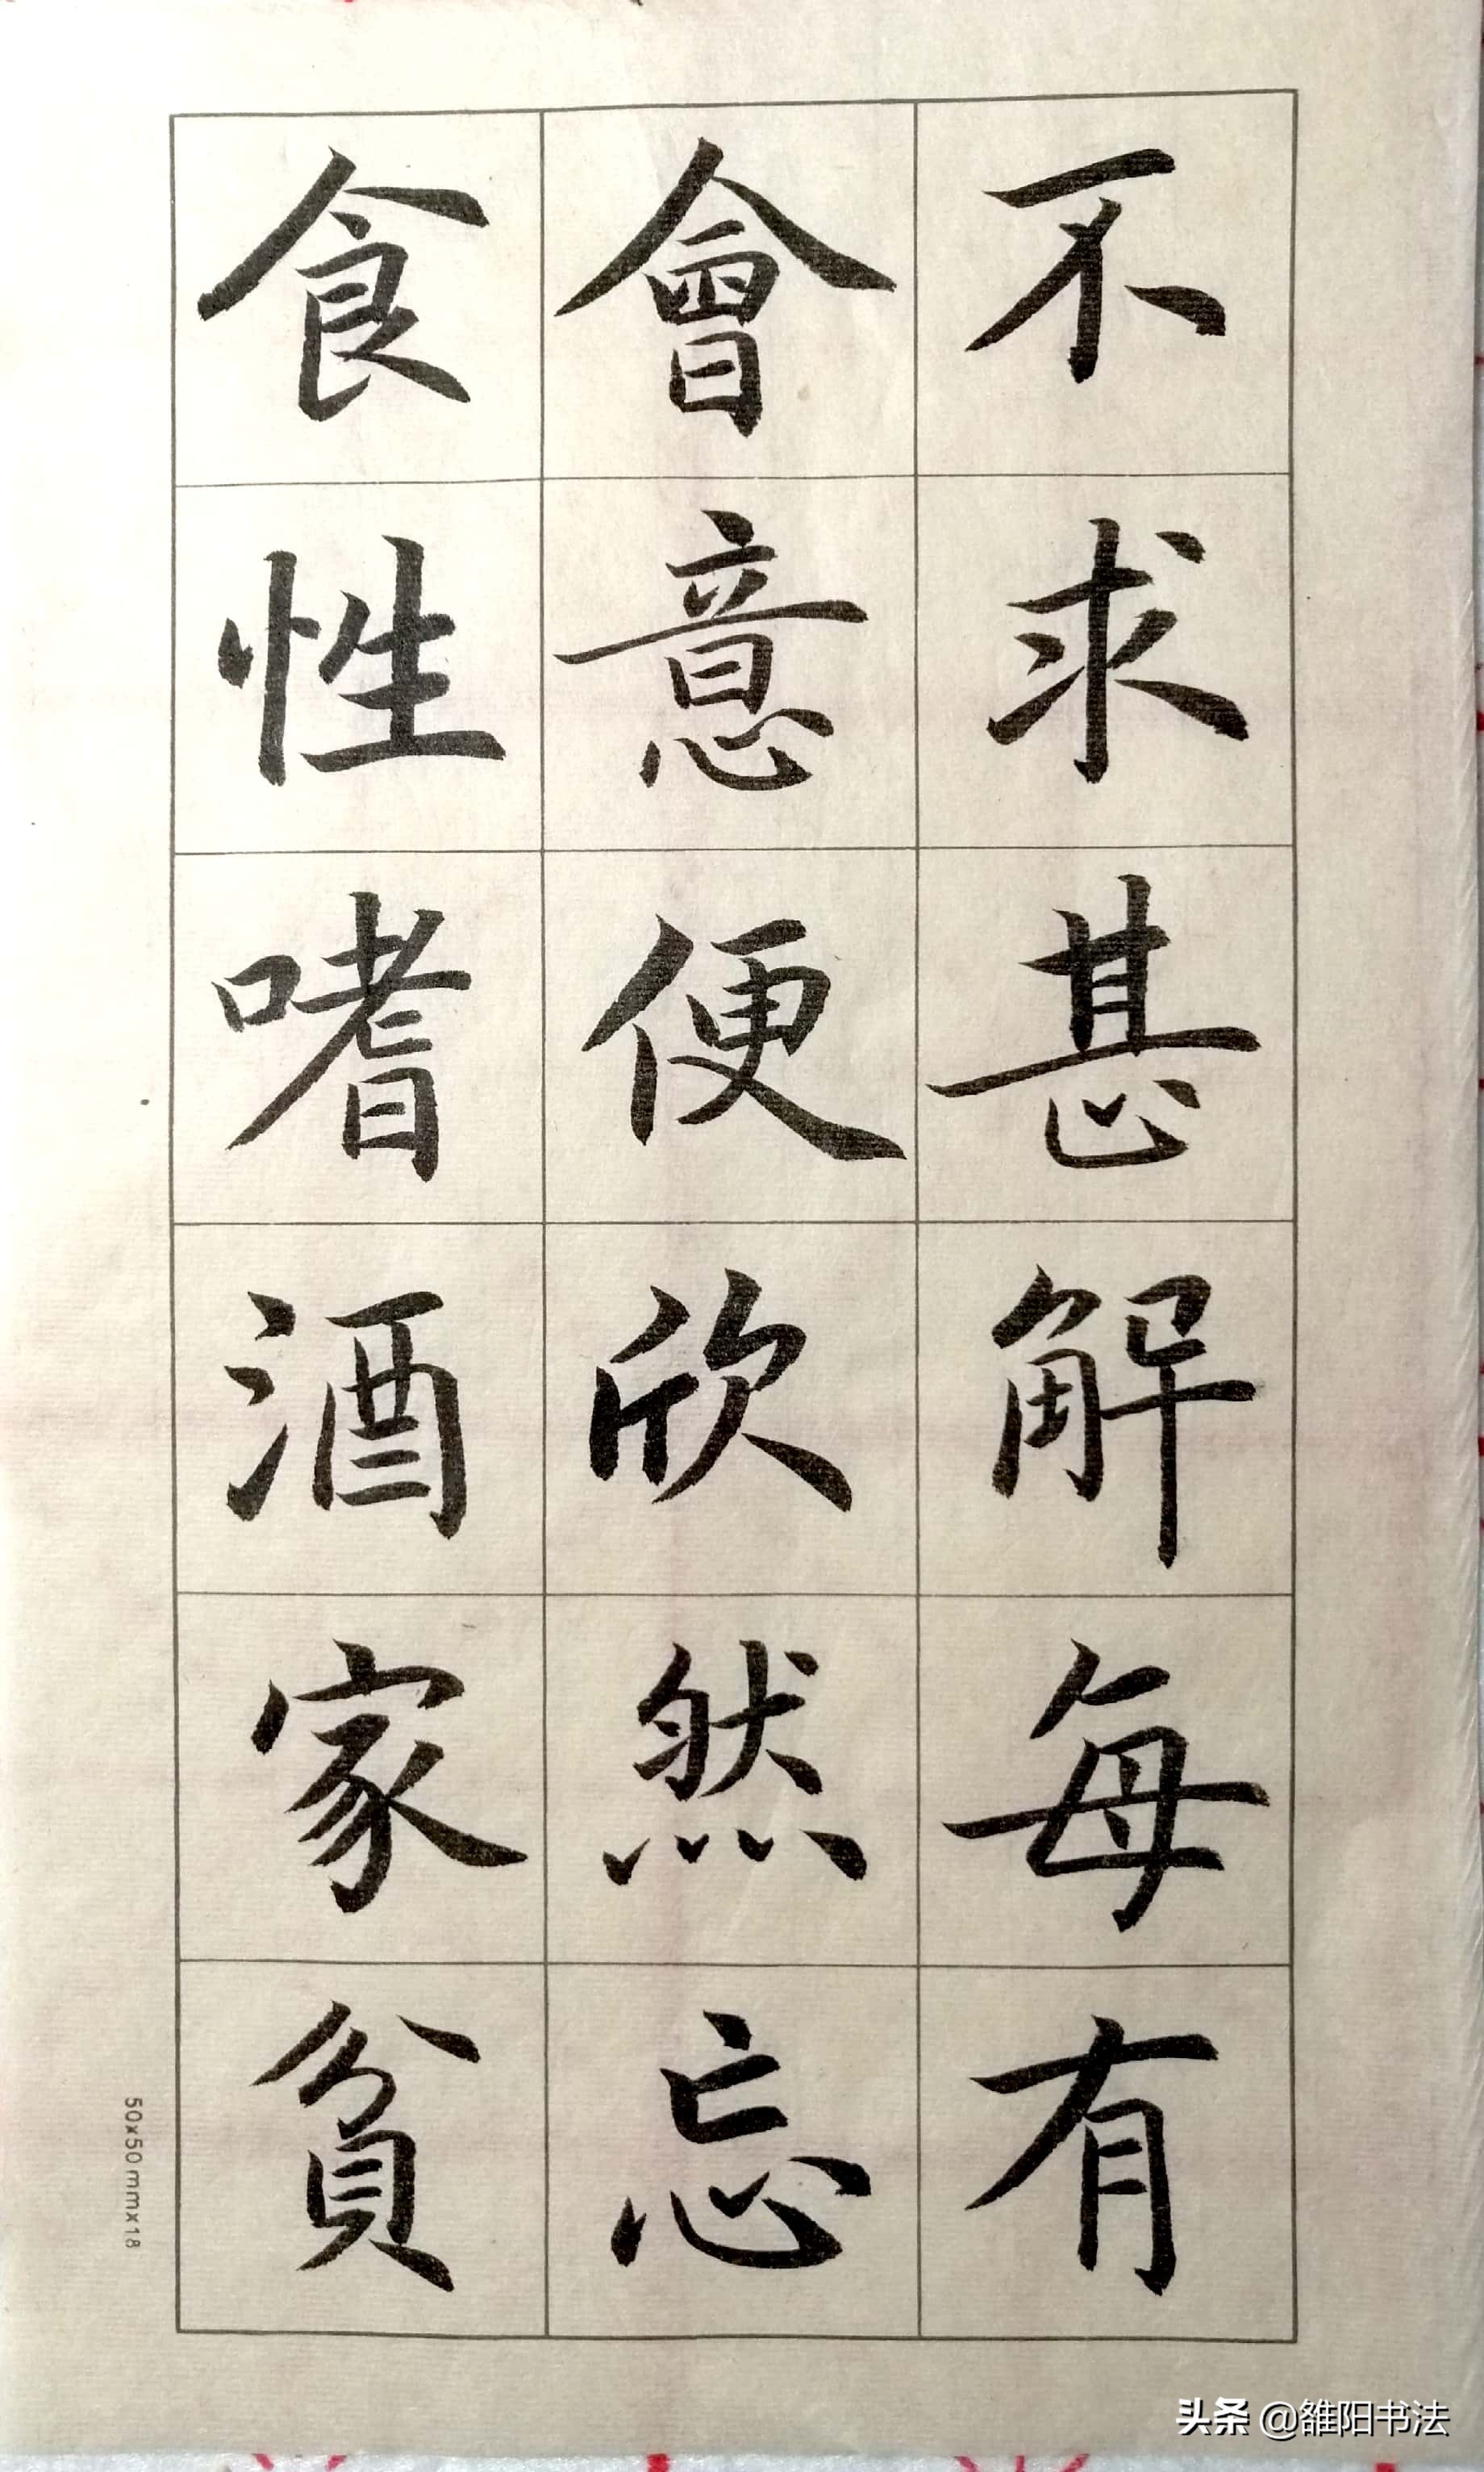 不求甚解每有
會意便欣然忘
食性嗜酒家貧
50x50mmx18
头条 @雒阳书法